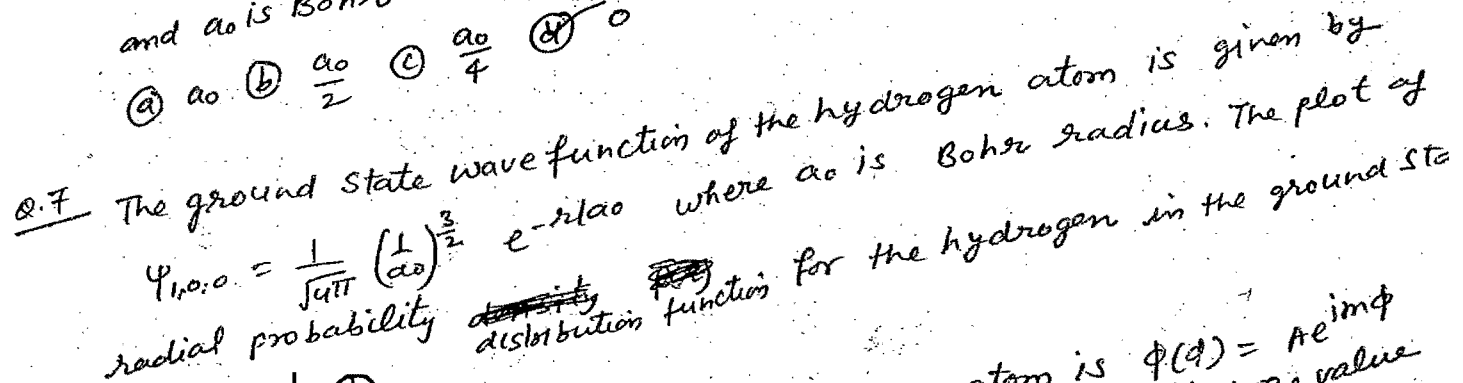 and a₀ is Bohr
ⓐ a₀ ⓑ a₀/2 ⓒ a₀/4 ⓓ 0
Q.7 The ground state wave function of the hydrogen atom is given by
Ψ₁,₀,₀ = 1/√4π (1/a₀)^3/2 e^-r/a₀ where a₀ is Bohr radius. The plot of
radial probability distribution function for the hydrogen in the ground sta
atom is Φ(φ) = Ae^imφ
value